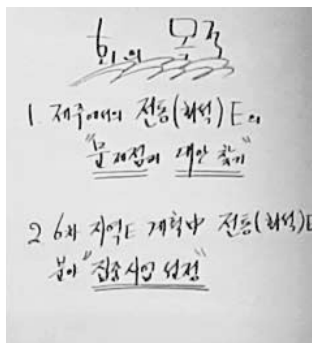 회의 목적
1. 제주에서의 전통(해석)E의
"문제점과 대안 찾기"
2 6차 지역E계획中 전통(해석)E
분야 "집중사업 선정"